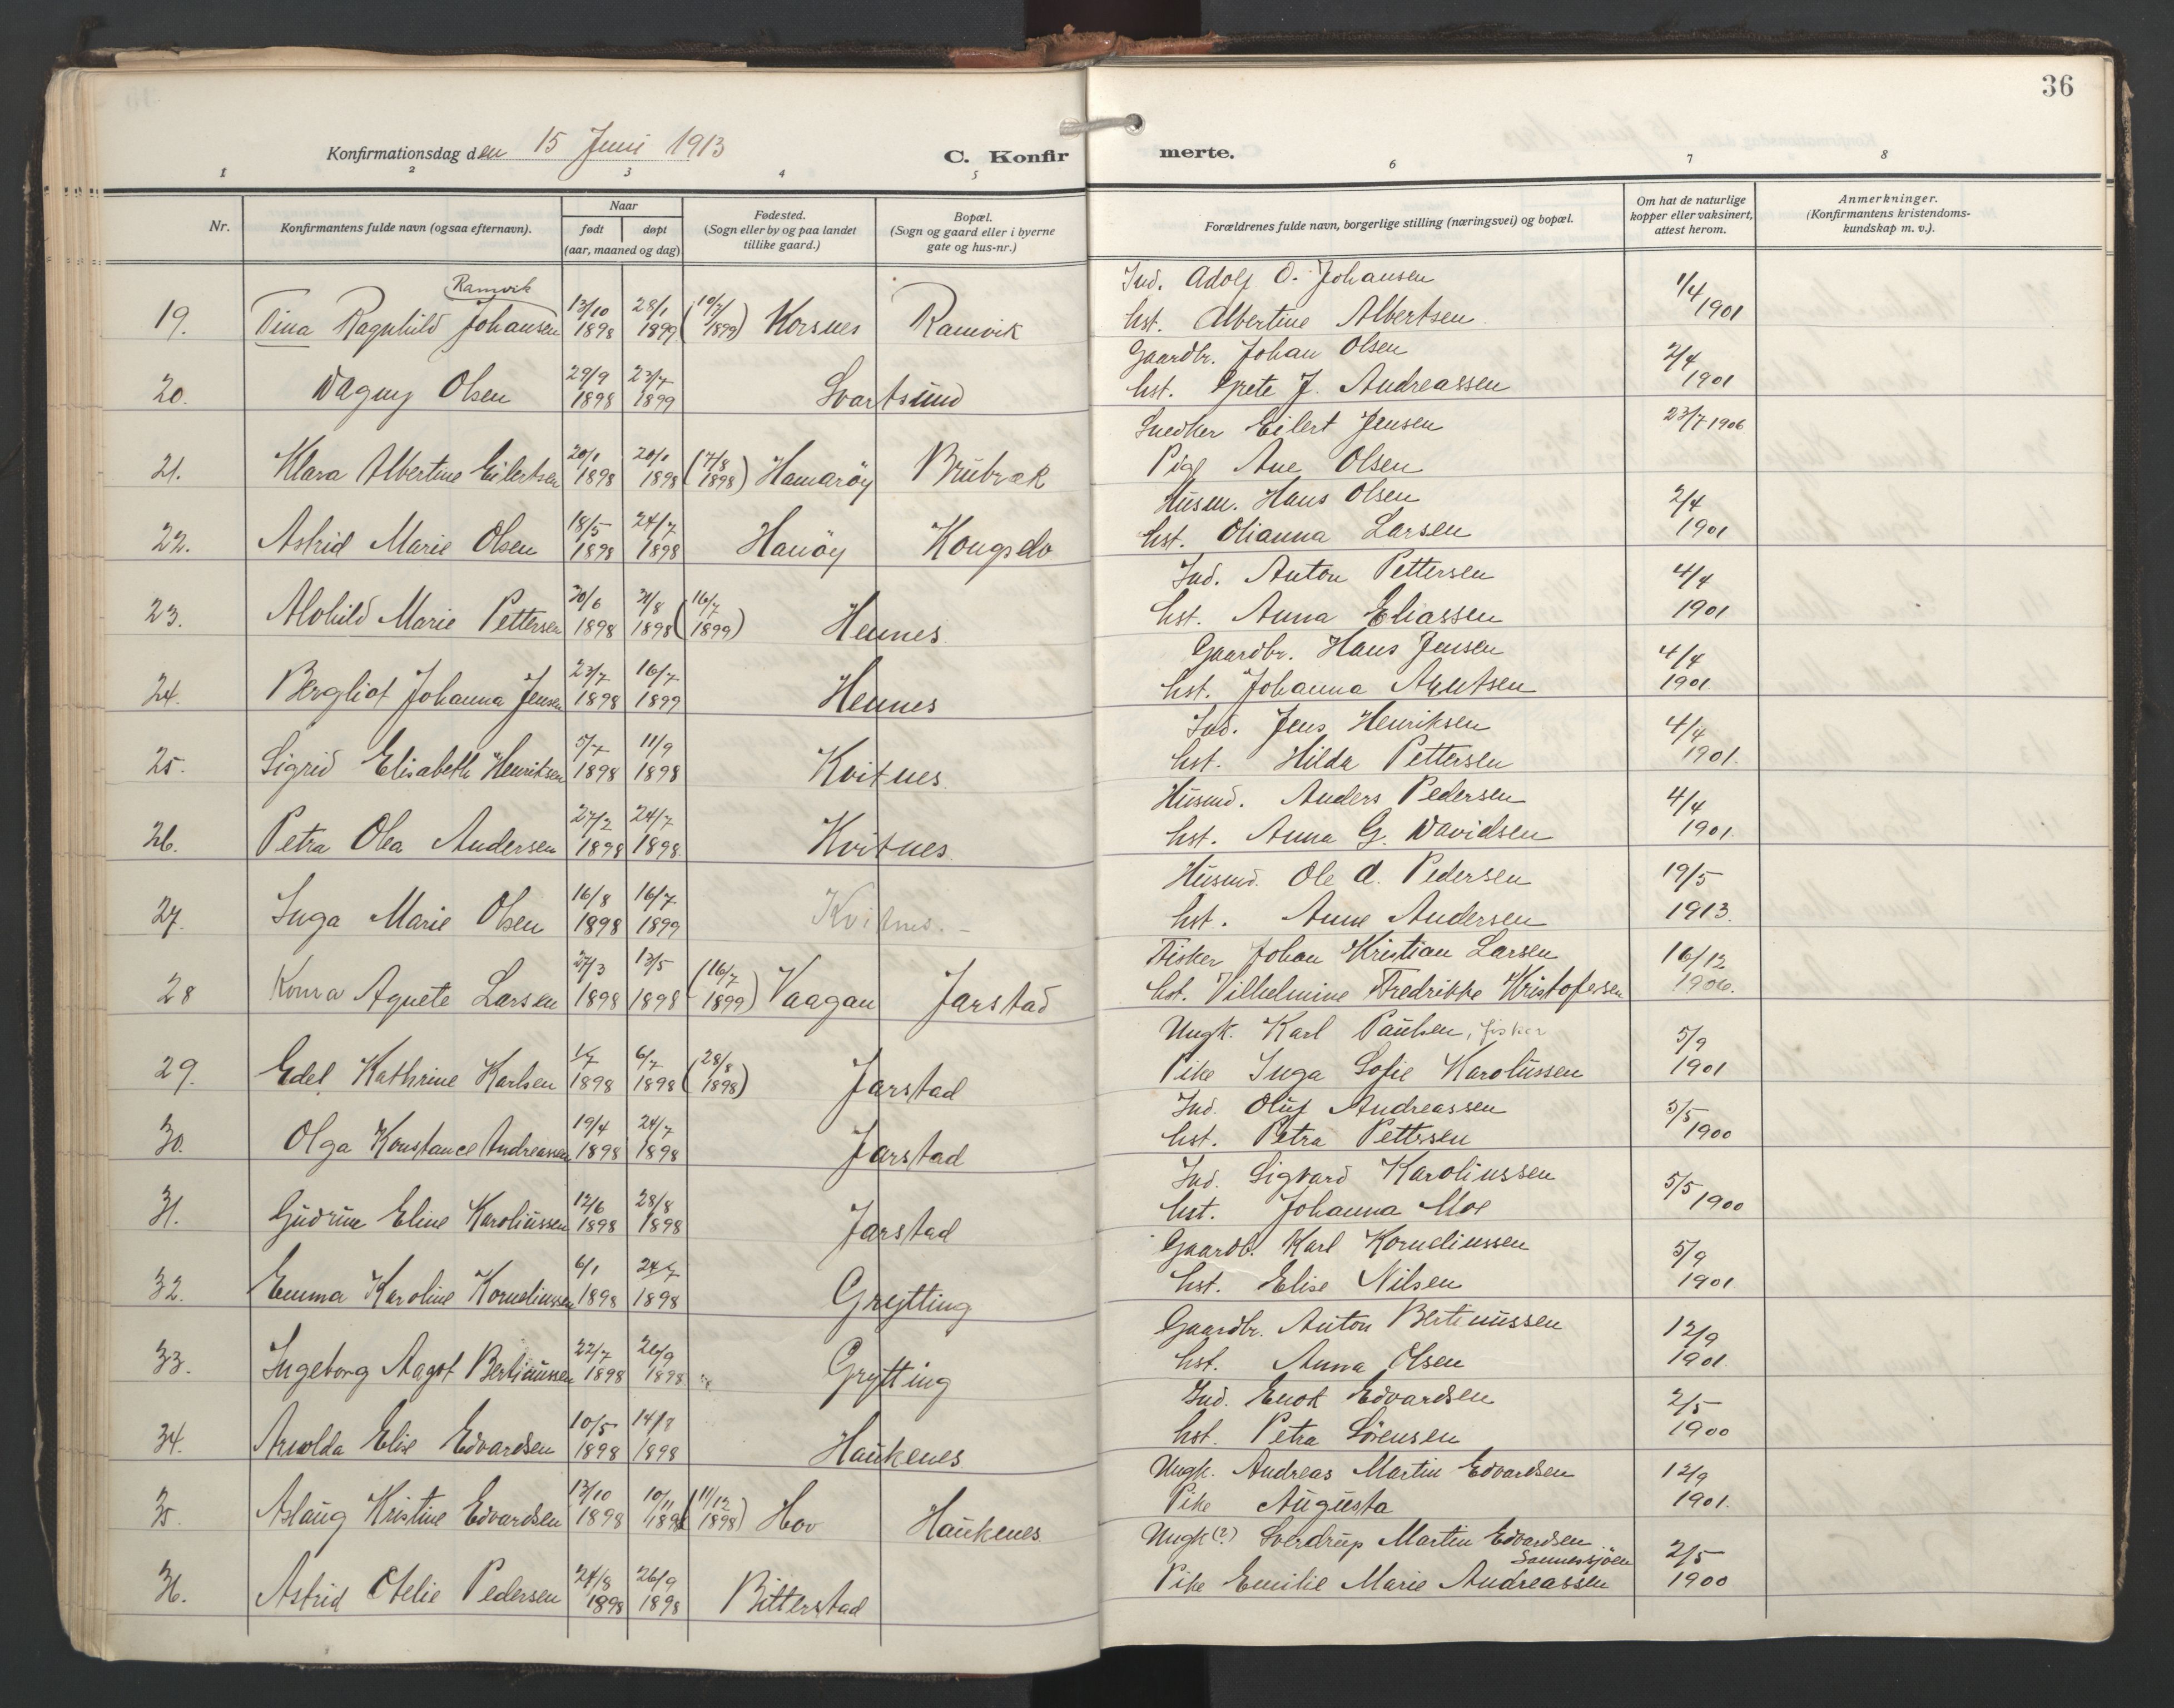 36
Konfirmationsdag den 15 Juni 1913
C. Konfirmerte.
1 2 3 4 5 6 7 8
Nr.
Konfirmantens fulde navn (ogsaa efternavn).
Naar
født døpt
(aar, maaned og dag)
Fødested.
(Sogn eller by og paa landet
tillike gaard.)
Bopæl.
(Sogn og gaard eller i byerne
gate og hus-nr.)
Forældrenes fulde navn, borgerlige stilling (næringsvei) og bopæl.
Om hat de naturlige
kopper eller vaksinert,
attest herom.
Anmerkninger.
(Konfirmantens kristendoms-
kundskap m. v.).
Ramvik
19. Tina Ragnhild Johansen 13/10 1898 28/1 1899 (10/7 1899) Korsnes Ramvik
Ind. Adolf O. Johansen
Hst. Albertine Albertsen 1/4 1901
20. Dagny Olsen 29/9 1898 23/7 1899 Svartsund
Gaardbr. Johan Olsen
Hst. Grete J. Andreassen 2/4 1901
21. Klara Albertine Eilertsen 20/1 1898 20/1 1898 (17/8 1898) Hamarøy Brubræk
Snedker Eilert Jensen 23/7 1906
Pige Ane Olsen
22. Astrid Marie Olsen 18/5 1898 24/7 1898 Hanøy Kongselv
Husm. Hans Olsen
Hst. Olianna Larsen 2/4 1901
23. Alvhild Marie Pettersen 30/6 1898 31/8 1898 (16/7 1899) Hennes
Ind. Anton Pettersen
Hst. Anna Eliassen 4/4 1901
24. Bergliot Johanna Jensen 23/7 1898 16/7 1899 Hennes
Gaardbr. Hans Jensen
Hst. Johanna Arntsen 4/4 1901
25. Sigrid Elisabeth Henriksen 5/7 1898 11/9 1898 Kvitnes
Ind. Jens Henriksen
Hst. Hilda Pettersen 4/4 1901.
26. Petra Olea Andersen 27/2 1898 24/7 1898 Kvitnes
Husmd. Anders Pedersen
Hst. Anna G. Davidsen 4/4 1901.
27. Inga Marie Olsen 16/8 1898 16/7 1899 Kvitnes. -
Husmd. Ole A. Pedersen
Hst. Anne Andersen 19/5 1913.
28 Konra Agnete Larsen 27/3 1898 13/5 1898 (16/7 1899) Vaagan Jarstad
Fisker Johan Kristian Larsen
Hst. Vilhelmine Fredrikke Kristofersen 16/12 1906.
29. Edel Kathrine Karlsen 1/7 1898 6/7 1898 (28/8 1898) Jarstad
Ungk. Karl Paulsen, fisker
Pike Inga Sofie Karolüssen 5/9 1901
30. Olga Konstance Andreassen 19/4 1898 24/7 1898 Jarstad
Ind. Oluf Andreassen
Hst. Petra Pettersen 5/5 1900
31. Gudrun Eline Karoliussen 12/6 1898 28/8 1898 Jarstad
Ind. Sigvard Karoliussen
Hst. Johanna Moe 5/5 1900
32. Emma Karoline Korneliussen 6/1 1898 24/7 1898 Grytting
Gaardb. Karl Korneliussen
Hst. Elise Nilsen 5/9 1901
33. Ingeborg Aagot Bertinussen 22/7 1898 26/9 1898 Grytting
Gaardbr. Anton Bertinussen
Hst. Anna Olsen 12/9 1901
34. Arnolda Elise Edvardsen 10/5 1898 14/8 1898 Haukenes
Ind. Enok Edvardsen
Hst. Petra Sörensen 2/5 1900
35. Aslaug Kristine Edvardsen 13/10 1898 10/11 1898 (11/12 1898) Hov Haukenes
Ungk. Andreas Martin Edvardsen
Pike Augusta 12/9 1901.
36. Astrid Otelie Pedersen 24/8 1898 26/9 1898 Bitterstad
Ungk (?) Sverdrup Martin Edvardsen
Sannessjöen
Pike Emilie Marie Andreassen 2/5 1900